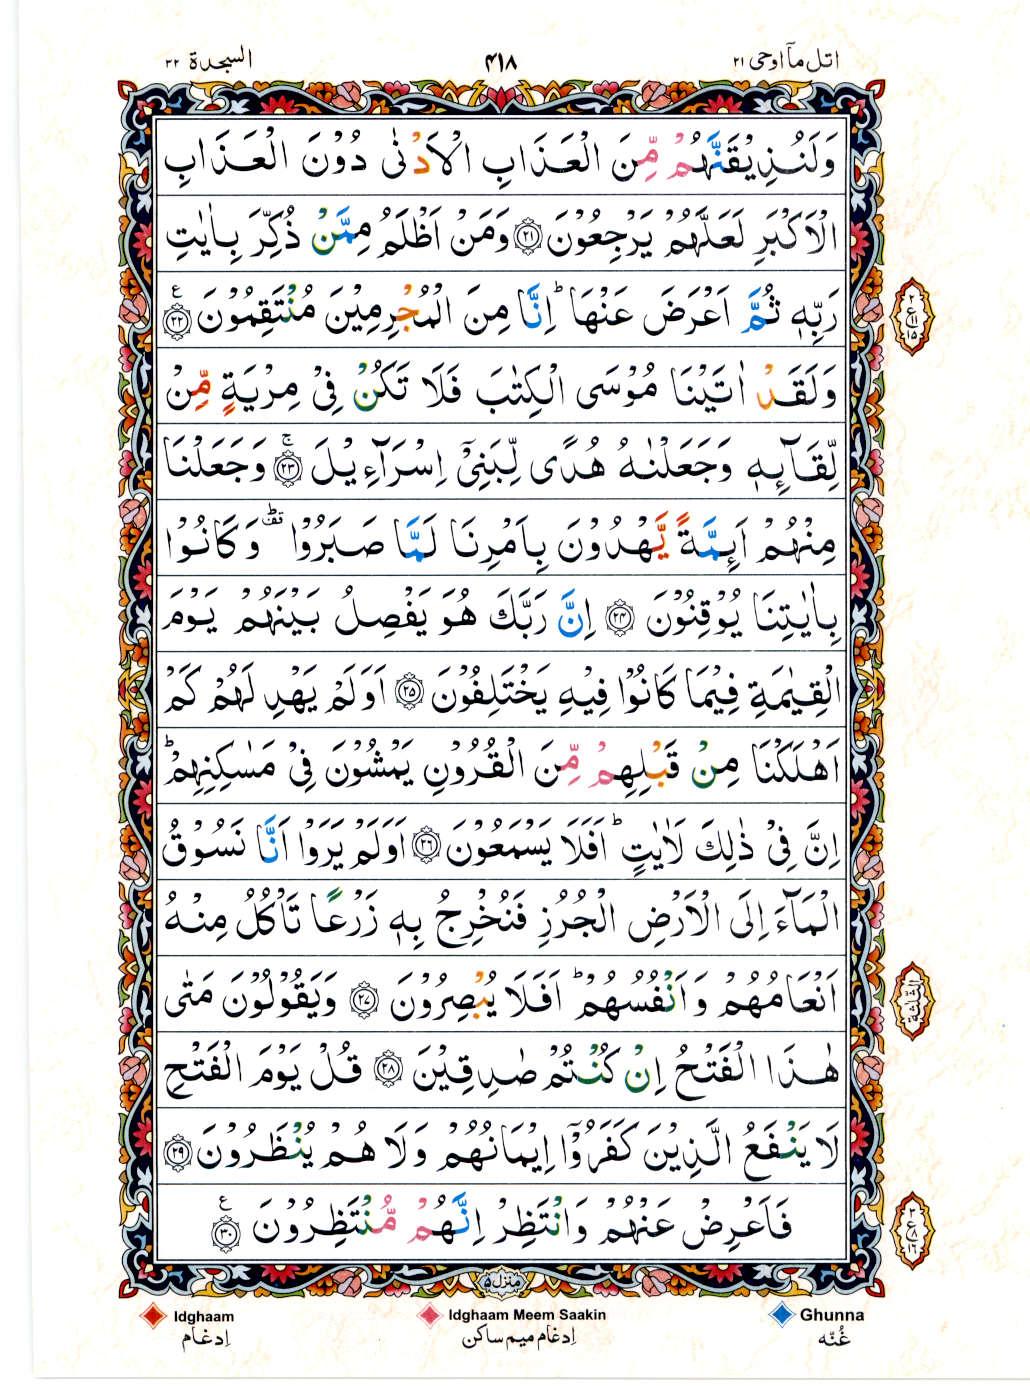 اتل ما اوحی ۲۱
۴۱۸
السجدة ۳۲
وَلَنُذِيْقَنَّهُمْ مِّنَ الْعَذَابِ الْاَدْنٰى دُوْنَ الْعَذَابِ
الْاَكْبَرِ لَعَلَّهُمْ يَرْجِعُوْنَ ﴿۲۱﴾ وَمَنْ اَظْلَمُ مِمَّنْ ذُكِّرَ بِاٰيٰتِ
رَبِّهٖ ثُمَّ اَعْرَضَ عَنْهَا ؕ اِنَّا مِنَ الْمُجْرِمِيْنَ مُنْتَقِمُوْنَ ﴿۲۲﴾ ع
وَلَقَدْ اٰتَيْنَا مُوْسَى الْكِتٰبَ فَلَا تَكُنْ فِىْ مِرْيَةٍ مِّنْ
لِّقَآئِهٖ وَجَعَلْنٰهُ هُدًى لِّبَنِىْٓ اِسْرَآءِيْلَ ﴿۲۳﴾ ۚ وَجَعَلْنَا
مِنْهُمْ اَئِمَّةً يَّهْدُوْنَ بِاَمْرِنَا لَمَّا صَبَرُوْا ۛ قف وَكَانُوْا
بِاٰيٰتِنَا يُوْقِنُوْنَ ﴿۲۴﴾ اِنَّ رَبَّكَ هُوَ يَفْصِلُ بَيْنَهُمْ يَوْمَ
الْقِيٰمَةِ فِيْمَا كَانُوْا فِيْهِ يَخْتَلِفُوْنَ ﴿۲۵﴾ اَوَلَمْ يَهْدِ لَهُمْ كَمْ
اَهْلَكْنَا مِنْ قَبْلِهِمْ مِّنَ الْقُرُوْنِ يَمْشُوْنَ فِىْ مَسٰكِنِهِمْ ؕ
اِنَّ فِىْ ذٰلِكَ لَاٰيٰتٍ ؕ اَفَلَا يَسْمَعُوْنَ ﴿۲۶﴾ اَوَلَمْ يَرَوْا اَنَّا نَسُوْقُ
الْمَآءَ اِلَى الْاَرْضِ الْجُرُزِ فَنُخْرِجُ بِهٖ زَرْعًا تَاْكُلُ مِنْهُ
اَنْعَامُهُمْ وَاَنْفُسُهُمْ ؕ اَفَلَا يُبْصِرُوْنَ ﴿۲۷﴾ وَيَقُوْلُوْنَ مَتٰى
هٰذَا الْفَتْحُ اِنْ كُنْتُمْ صٰدِقِيْنَ ﴿۲۸﴾ قُلْ يَوْمَ الْفَتْحِ
لَا يَنْفَعُ الَّذِيْنَ كَفَرُوْٓا اِيْمَانُهُمْ وَلَا هُمْ يُنْظَرُوْنَ ﴿۲۹﴾
فَاَعْرِضْ عَنْهُمْ وَانْتَظِرْ اِنَّهُمْ مُّنْتَظِرُوْنَ ﴿۳۰﴾ ع
منزل ۵
Ghunna
غُنّه
Idghaam Meem Saakin
اِدغام میم ساکن
Idghaam
اِدغام